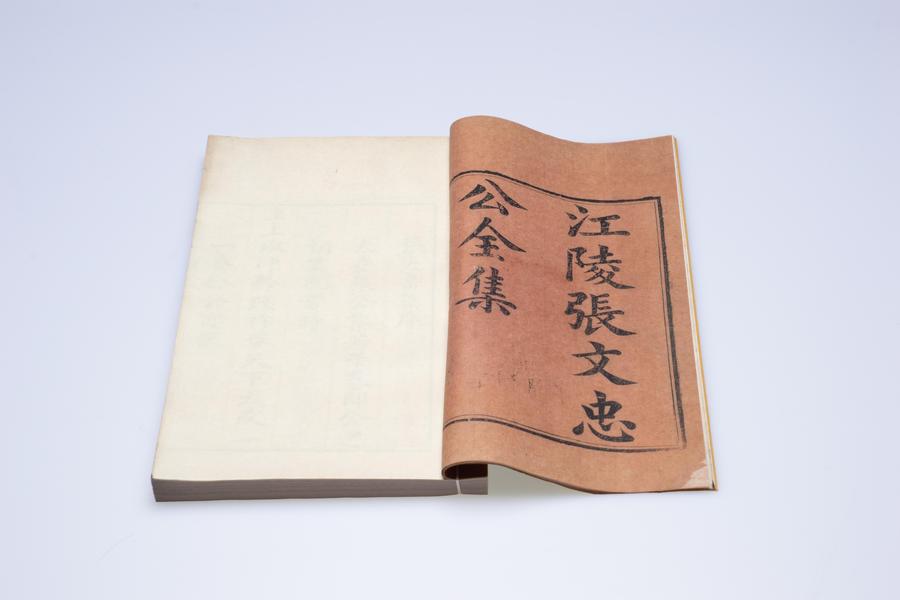 江陵張文忠
公全集